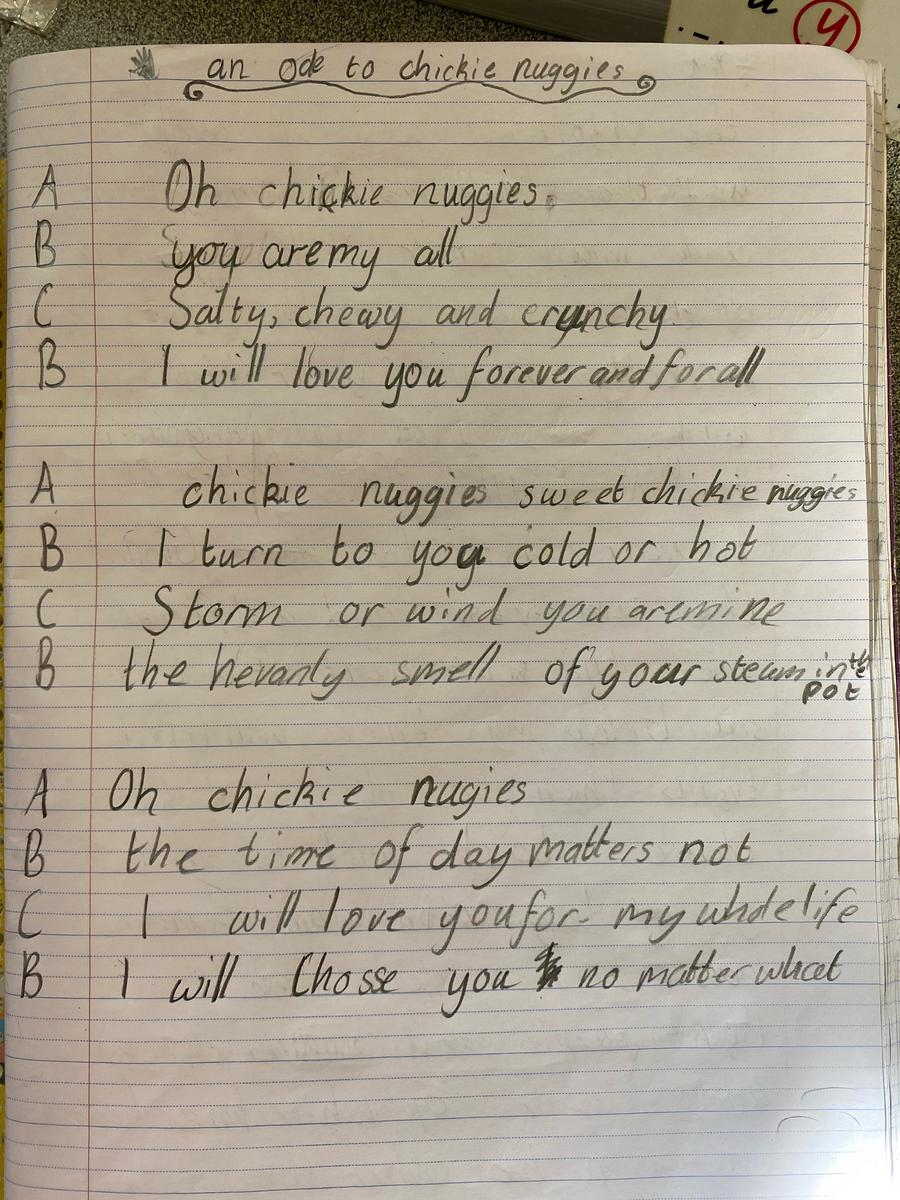 an Ode to chickie nuggies
A Oh chickie nuggies.
B you are my all
C Salty, chewy and crunchy
B I will love you forever and for all
A chickie nuggies sweet chickie nuggies
B I turn to you cold or hot
C Storm or wind you are mine
B the hevanly smell of your steam in the pot
A Oh chickie nugies
B the time of day matters not
C I will love you for my whole life
B I will Chosse you no matter what